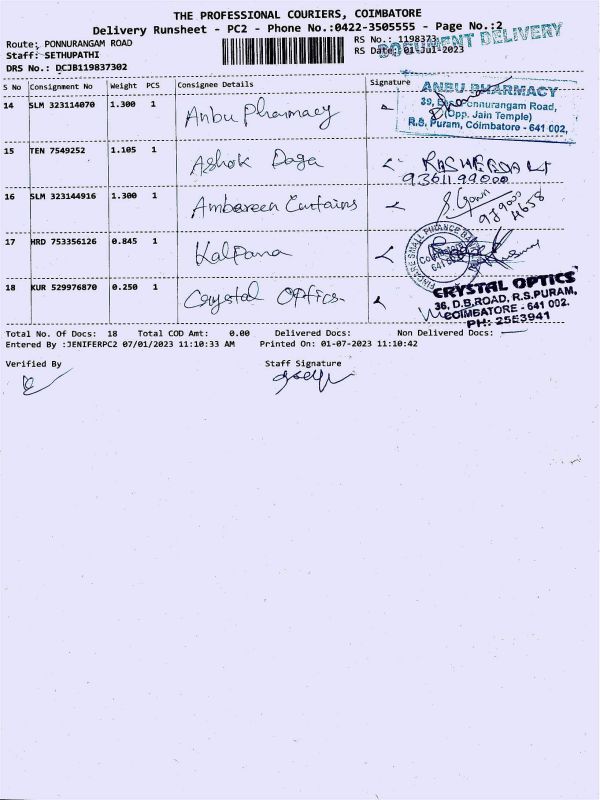 THE PROFESSIONAL COURIERS, COIMBATORE
Delivery Runsheet - PC2 - Phone No.:0422-3505555 - Page No.:2
Route: PONNURANGAM ROAD
RS No.: 1198373
DOCUMENT DELIVERY
Staff: SETHUPATHI
RS Date: 01-Jul-2023
DRS No.: DCJB119837302
S No Consignment No Weight PCS Consignee Details Signature
14 SLM 323114070 1.300 1 Anbu Pharmacy
ANBU PHARMACY
39, Ponnurangam Road,
(Opp. Jain Temple)
R.S. Puram, Coimbatore - 641 002.
15 TEN 7549252 1.105 1 Ashok Daga
16 SLM 323144916 1.300 1 Ambareen Curtains
17 HRD 753356126 0.845 1 Kalpana
SMALL FINANCE
18 KUR 529976870 0.250 1 Crystal Optics
CRYSTAL OPTICS
36, D.B.ROAD, R.S.PURAM,
COIMBATORE - 641 002.
PH: 2553941
Total No. Of Docs: 18 Total COD Amt: 0.00 Delivered Docs: Non Delivered Docs:
Entered By :JENIFERPC2 07/01/2023 11:10:33 AM Printed On: 01-07-2023 11:10:42
Verified By Staff Signature